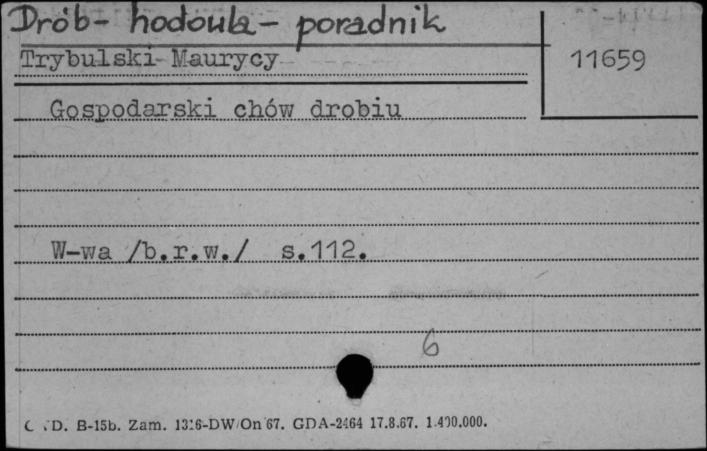 Drób- hodowla- poradnik
Trybulski Maurycy
11659
Gospodarski chów drobiu
W-wa /b.r.w./ s.112.
6
D. B-15b. Zam. 1316-DW/On 67. GDA-2464 17.8.67. 1.400.000.